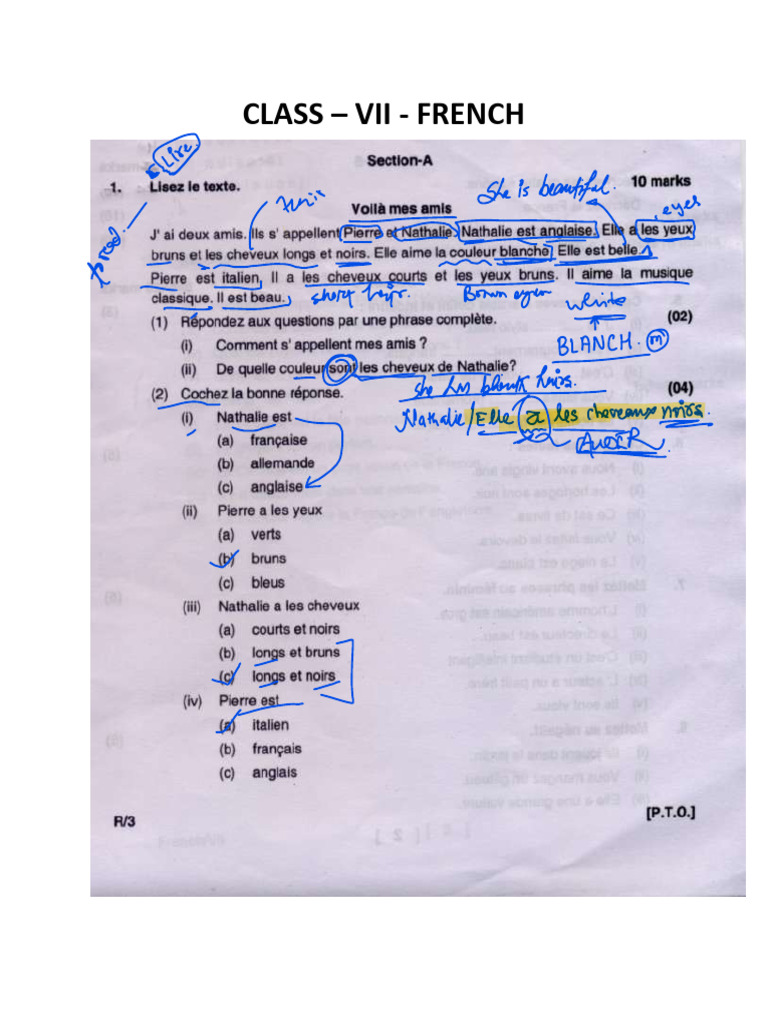 CLASS – VII - FRENCH
Lire
Section-A
1. Lisez le texte. 10 marks
to read
She is beautiful.
Voilà mes amis
eyes
J' ai deux amis. Ils s' appellent Pierre et Nathalie. Nathalie est anglaise. Elle a les yeux
bruns et les cheveux longs et noirs. Elle aime la couleur blanche. Elle est belle.
Pierre est italien, Il a les cheveux courts et les yeux bruns. Il aime la musique
classique. Il est beau. short hairs. Brown eyes
white
(1) Répondez aux questions par une phrase complète. (02)
(i) Comment s' appellent mes amis ? BLANCH. (m)
(ii) De quelle couleur sont les cheveux de Nathalie?
she has black hairs.
(2) Cochez la bonne réponse. (04)
Nathalie/Elle a les cheveaux noirs.
(i) Nathalie est
(a) française
(b) allemande
(c) anglaise
(ii) Pierre a les yeux
(a) verts
(b) bruns
(c) bleus
(iii) Nathalie a les cheveux
(a) courts et noirs
(b) longs et bruns
(c) longs et noirs
(iv) Pierre est
(a) italien
(b) français
(c) anglais
R/3 [P.T.O.]